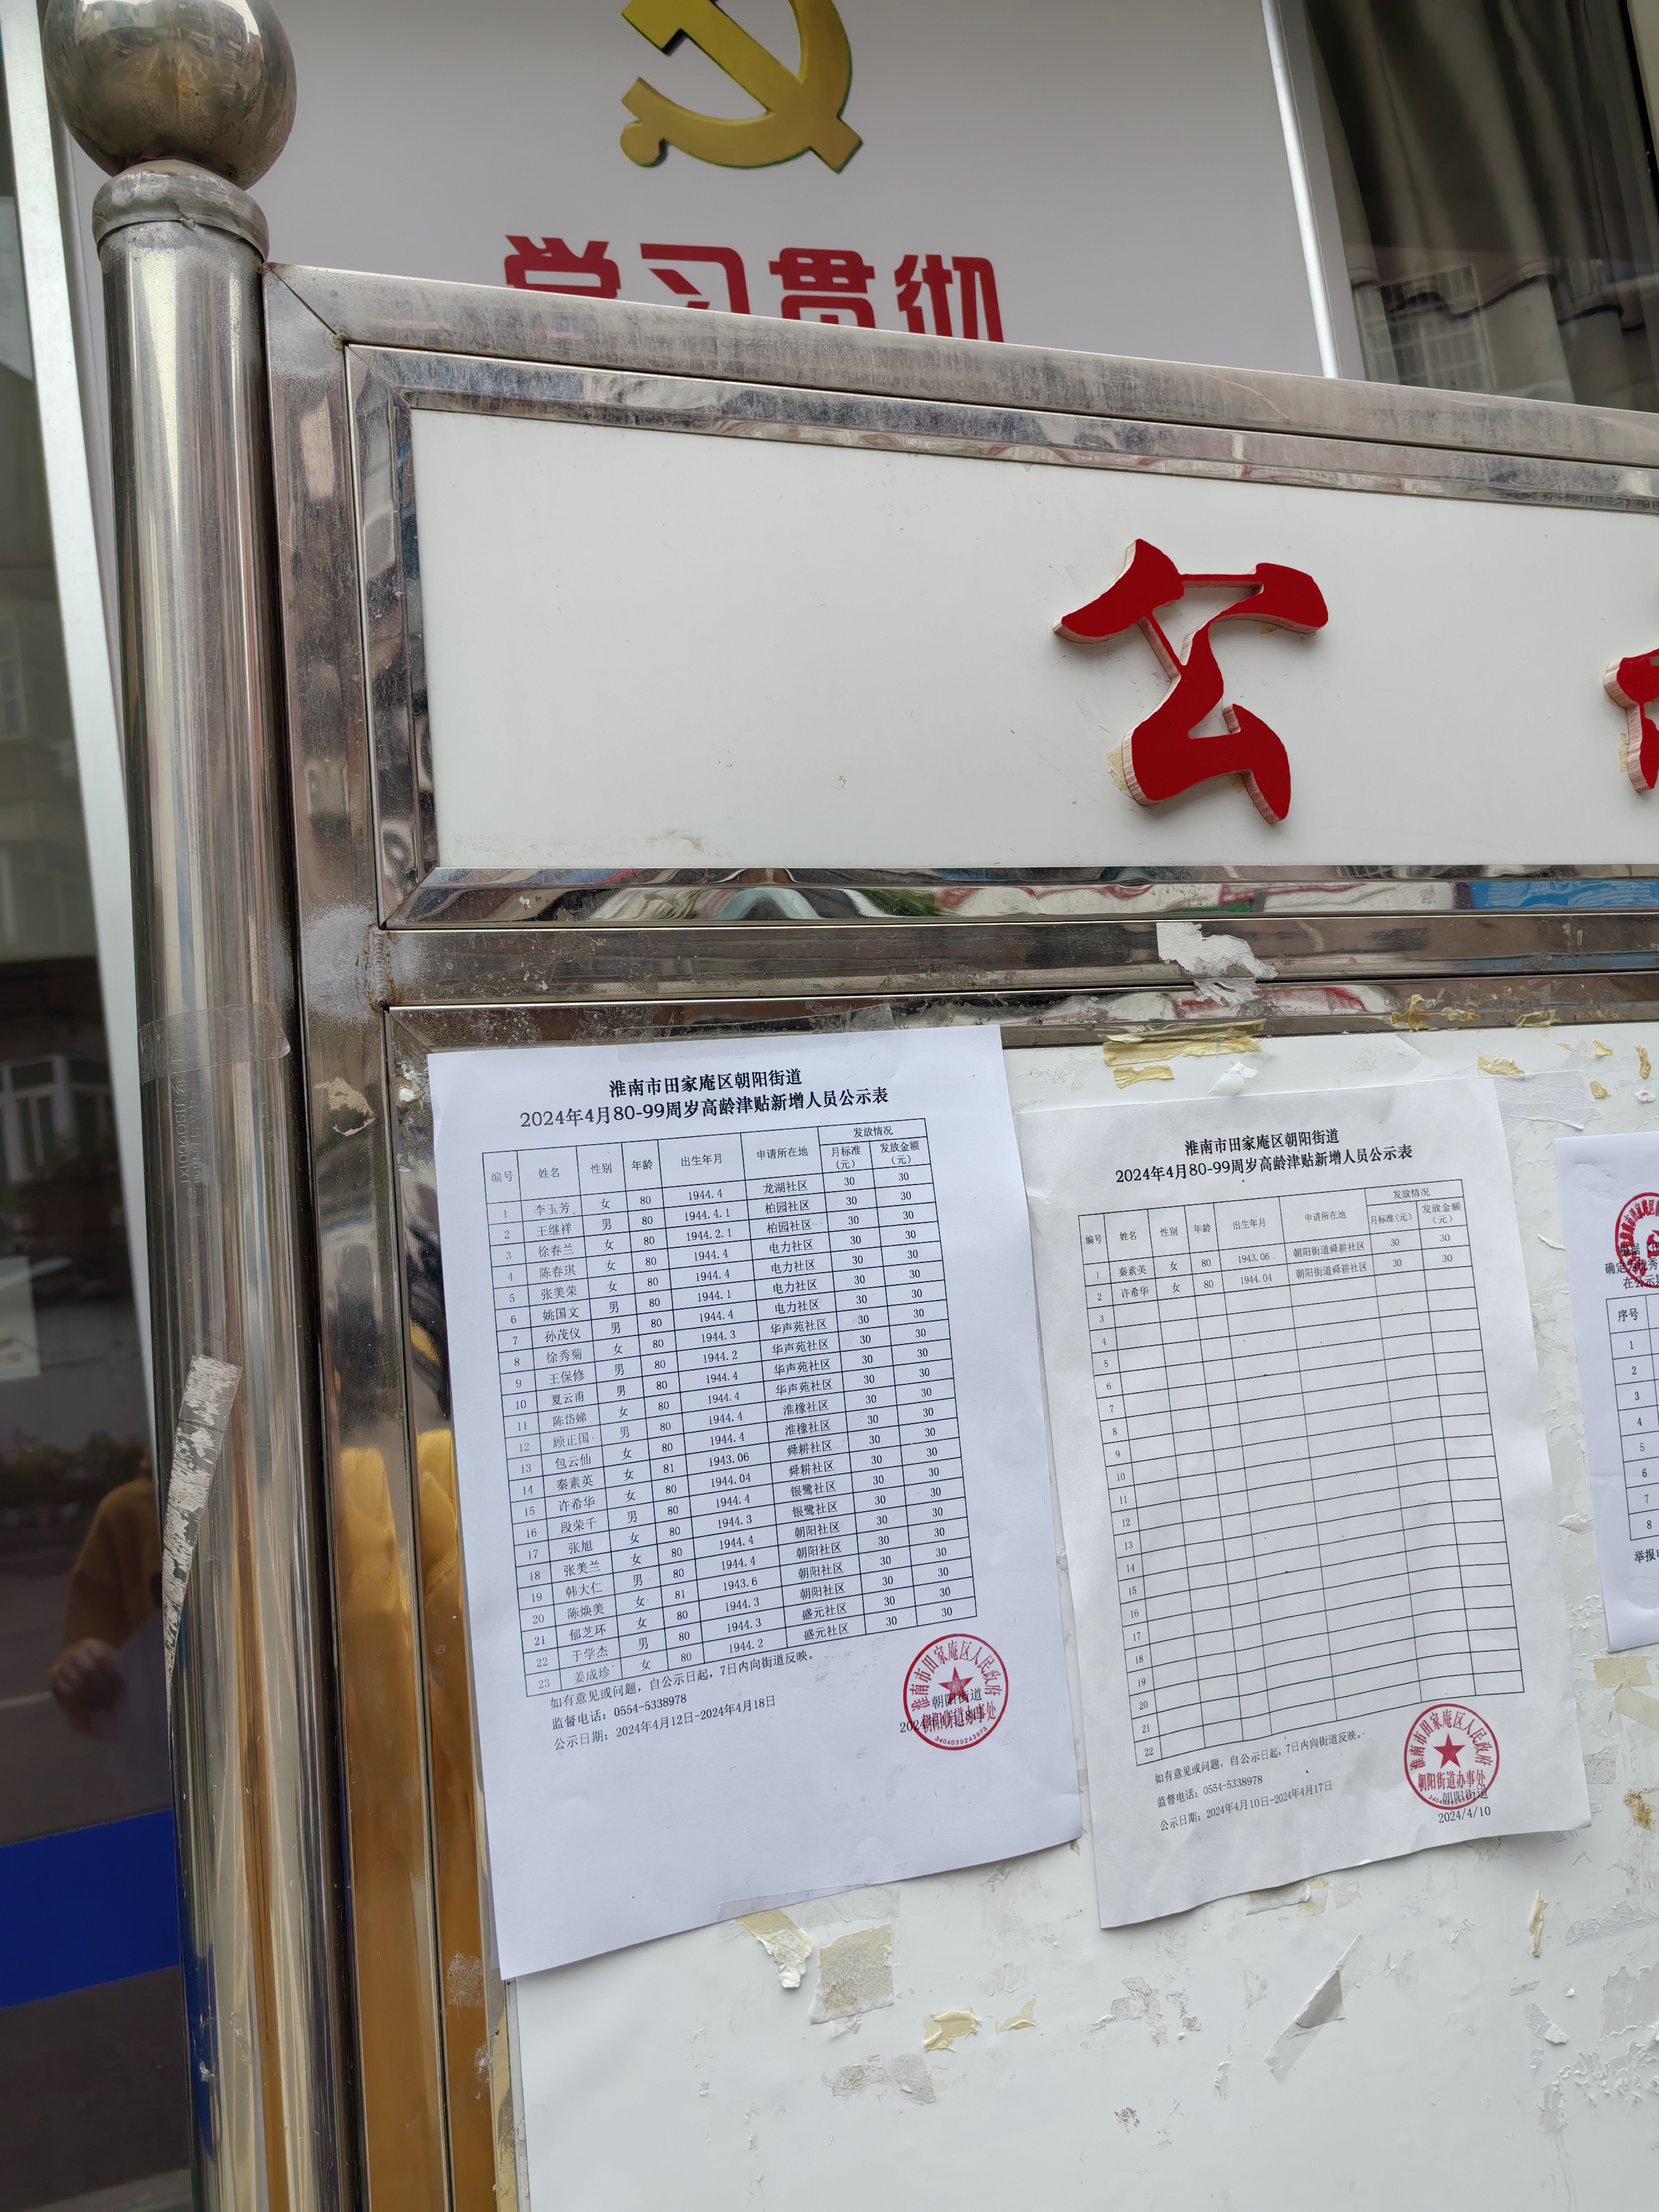 学习贯彻
公
淮南市田家庵区朝阳街道
2024年4月80-99周岁高龄津贴新增人员公示表
编号 姓名 性别 年龄 出生年月 申请所在地 发放情况
月标准（元） 发放金额（元）
1 李玉芳 女 80 1944.4 龙湖社区 30 30
2 王继祥 男 80 1944.4.1 柏园社区 30 30
3 徐春兰 女 80 1944.2.1 柏园社区 30 30
4 陈春琪 女 80 1944.4 电力社区 30 30
5 张美荣 女 80 1944.4 电力社区 30 30
6 姚国文 男 80 1944.1 电力社区 30 30
7 孙茂仪 男 80 1944.4 电力社区 30 30
8 徐秀菊 女 80 1944.3 华声苑社区 30 30
9 王保修 男 80 1944.2 华声苑社区 30 30
10 夏云甫 男 80 1944.4 华声苑社区 30 30
11 陈岱娣 女 80 1944.4 华声苑社区 30 30
12 顾正国 男 80 1944.4 淮橡社区 30 30
13 包云仙 女 80 1944.4 淮橡社区 30 30
14 秦素英 女 81 1943.06 舜耕社区 30 30
15 许希华 女 80 1944.04 舜耕社区 30 30
16 段荣千 男 80 1944.4 银鹭社区 30 30
17 张旭 女 80 1944.3 银鹭社区 30 30
18 张美兰 女 80 1944.4 朝阳社区 30 30
19 韩大仁 男 80 1944.4 朝阳社区 30 30
20 陈焕美 女 81 1943.6 朝阳社区 30 30
21 郁芝环 女 80 1944.3 朝阳社区 30 30
22 于学杰 男 80 1944.3 盛元社区 30 30
23 姜成珍 女 80 1944.2 盛元社区 30 30
如有意见或问题，自公示日起，7日内向街道反映。
监督电话：0554-5338978
公示日期：2024年4月12日-2024年4月18日
朝阳街道
淮南市田家庵区人民政府
朝阳街道办事处
3404030243973
淮南市田家庵区朝阳街道
2024年4月80-99周岁高龄津贴新增人员公示表
编号 姓名 性别 年龄 出生年月 申请所在地 发放情况
月标准(元) 发放金额（元）
1 秦素英 女 80 1943.06 朝阳街道舜耕社区 30 30
2 许希华 女 80 1944.04 朝阳街道舜耕社区 30 30
3
4
5
6
7
8
9
10
11
12
13
14
15
16
17
18
19
20
21
22
如有意见或问题，自公示日起，7日内向街道反映。
监督电话：0554-5338978
公示日期：2024年4月10日-2024年4月17日
淮南市田家庵区人民政府
朝阳街道办事处
朝阳街道
2024/4/10
在公示
序号
1
2
3
4
5
6
7
8
举报